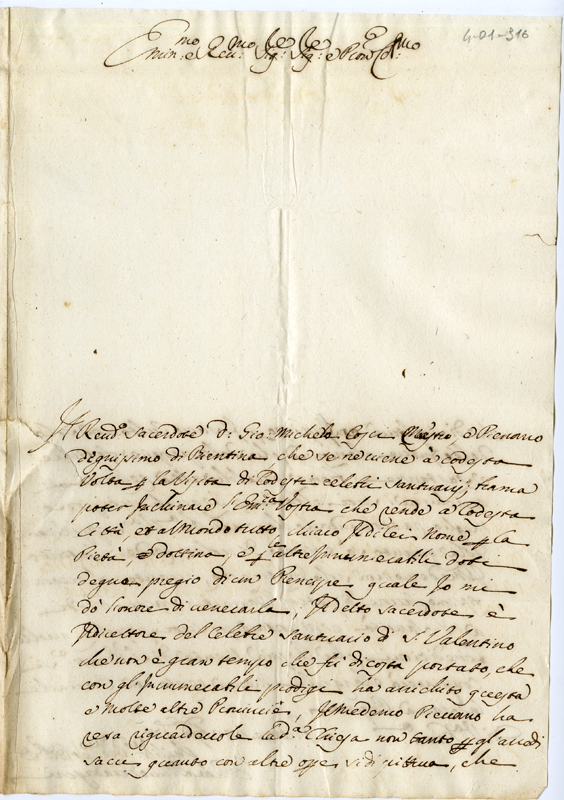 4-01-316
Emin:mo e Reu:mo Sig:re Sig:re e Pron Col:mo
Il Reud:o Sacerdote D: Gio: Michele Cosci e Pievano
degnissimo di Bientina che se ne viene à codesta
volta p la Visita di Codesti celebri Santuarij, brama
poter Inchinare S: Em:a Vostra che rende à Codesta
Città, et al Mondo tutto chiaro Il di lei Nome p la
Pietà, e dottrina, e p altre Innumerabili doti
degne pregio di un Prencipe quale Io mi
dò honore di uenerarla, Il detto Sacerdote è
Il direttore del Celebre Santuario di S. Valentino
che non è gran tempo che fù di costà portato, che
con gl'Innumerabili prodigi ha arichito questa
e Molte altre Prouincie, Il Medemo Pievano ha
resa riguardeuole la d:a Chiesa non tanto p gl'aredi
sacri quanto con altre ope sì di pittura, che